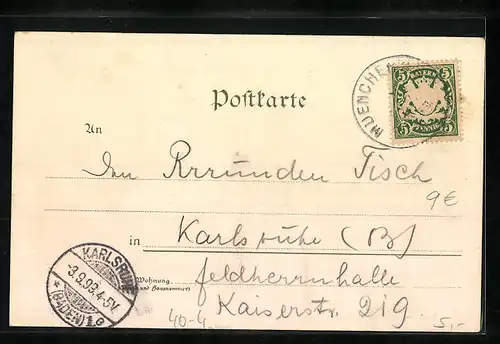 Postkarte
MUENCHEN
5 BAYERN 5
5 PFENNIG 5
An
Rrrunden Tisch
9€
in Karlsruhe (B)
Wohnung
(und Hausnummer)
feldherrnhalle
Kaiserstr. 219
KARLSRUHE
3.9.98.4-5V.
* (BADEN) 1.
40-4
5,-